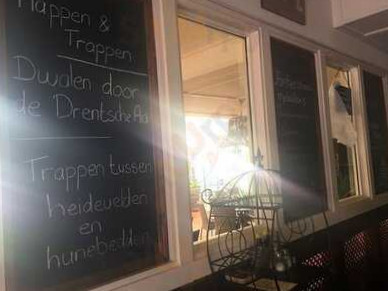 Happen &
Trappen
Dwalen door
de Drentsche Aa
Trappen tussen
heidevelden
en
hunebedden